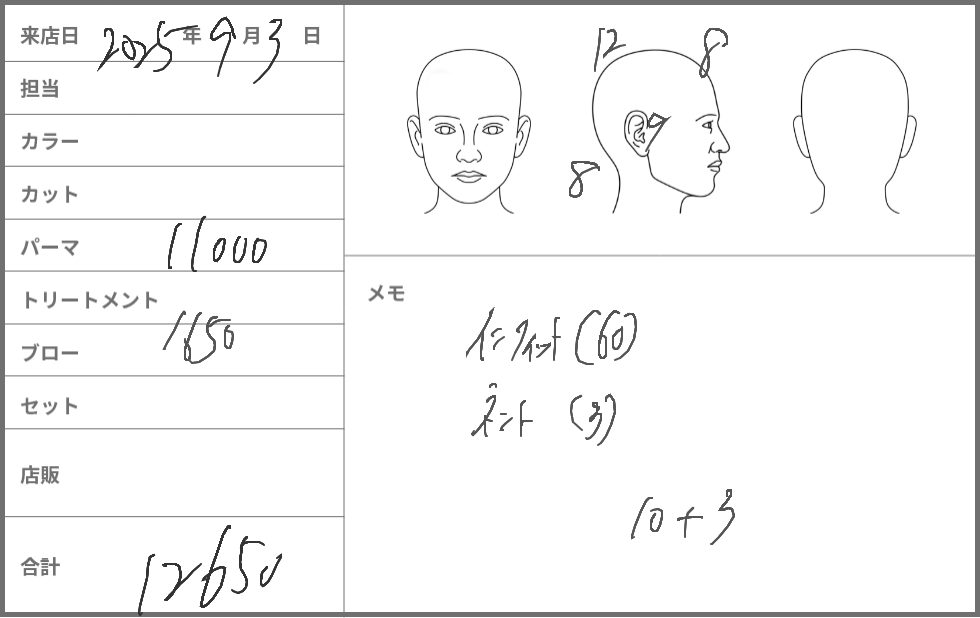 来店日 2025年9月3日
担当
カラー
カット
パーマ 11000
トリートメント
ブロー 1650
セット
店販
合計 12650
12 8
9
8
メモ
(60)
(3)
10+3